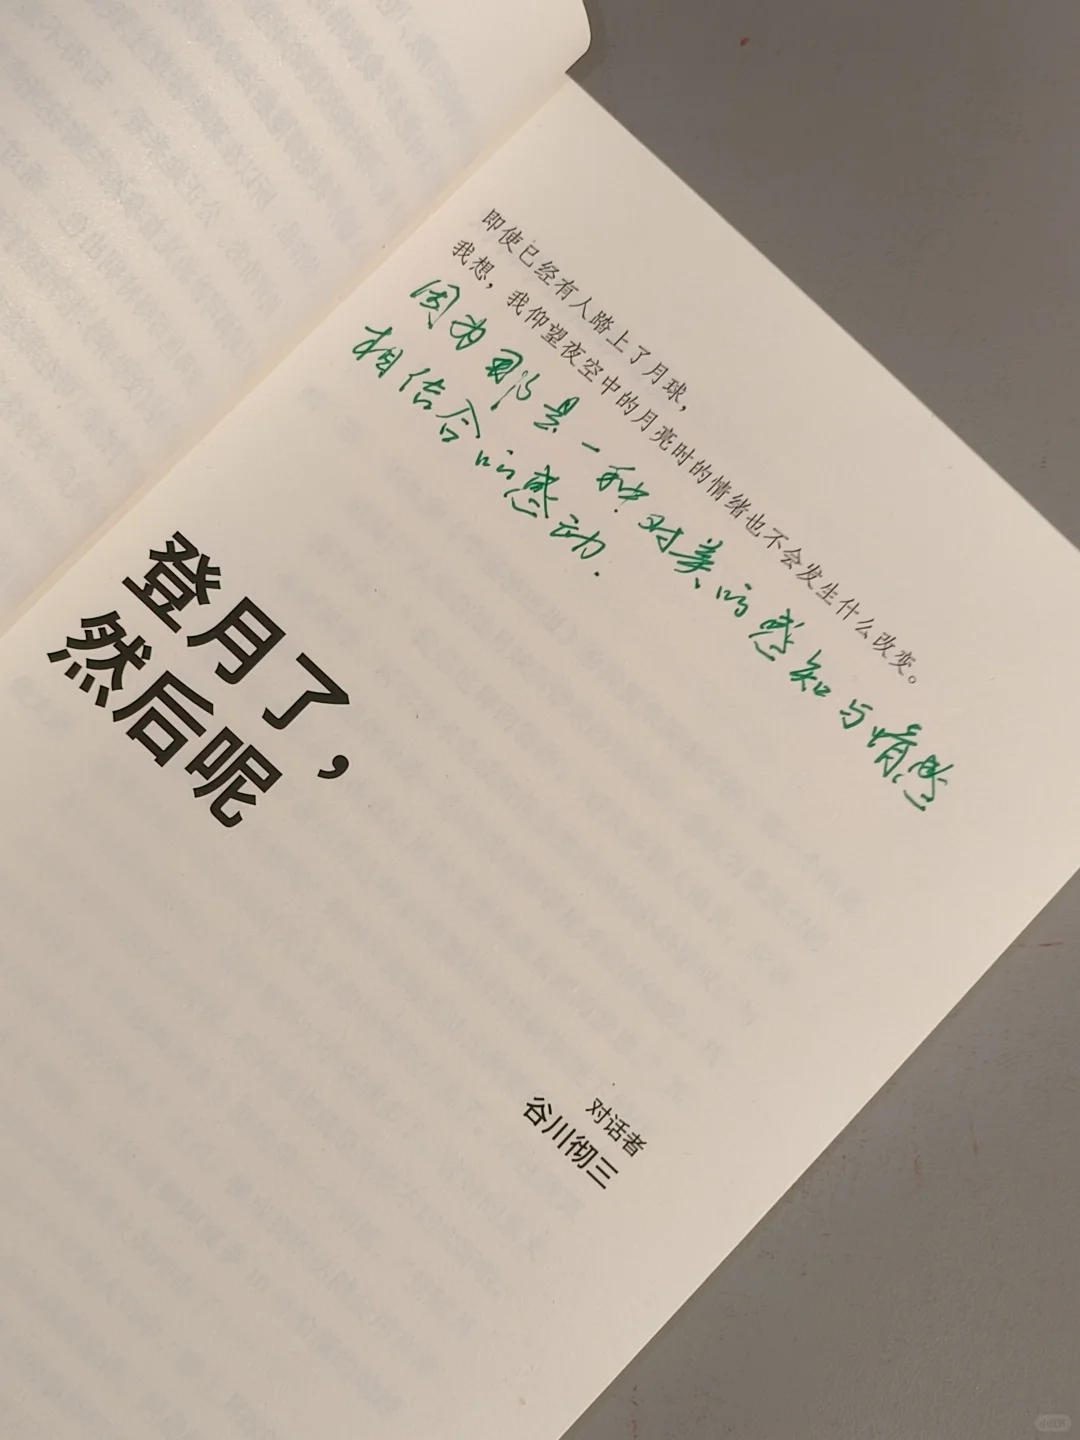 即使已经有人踏上了月球，
我想，我仰望夜空中的月亮时的情绪也不会发生什么改变。
因为那是一种对美的感知与情感
相结合的感动.
登月了，
然后呢
对话者
谷川彻三
小红书